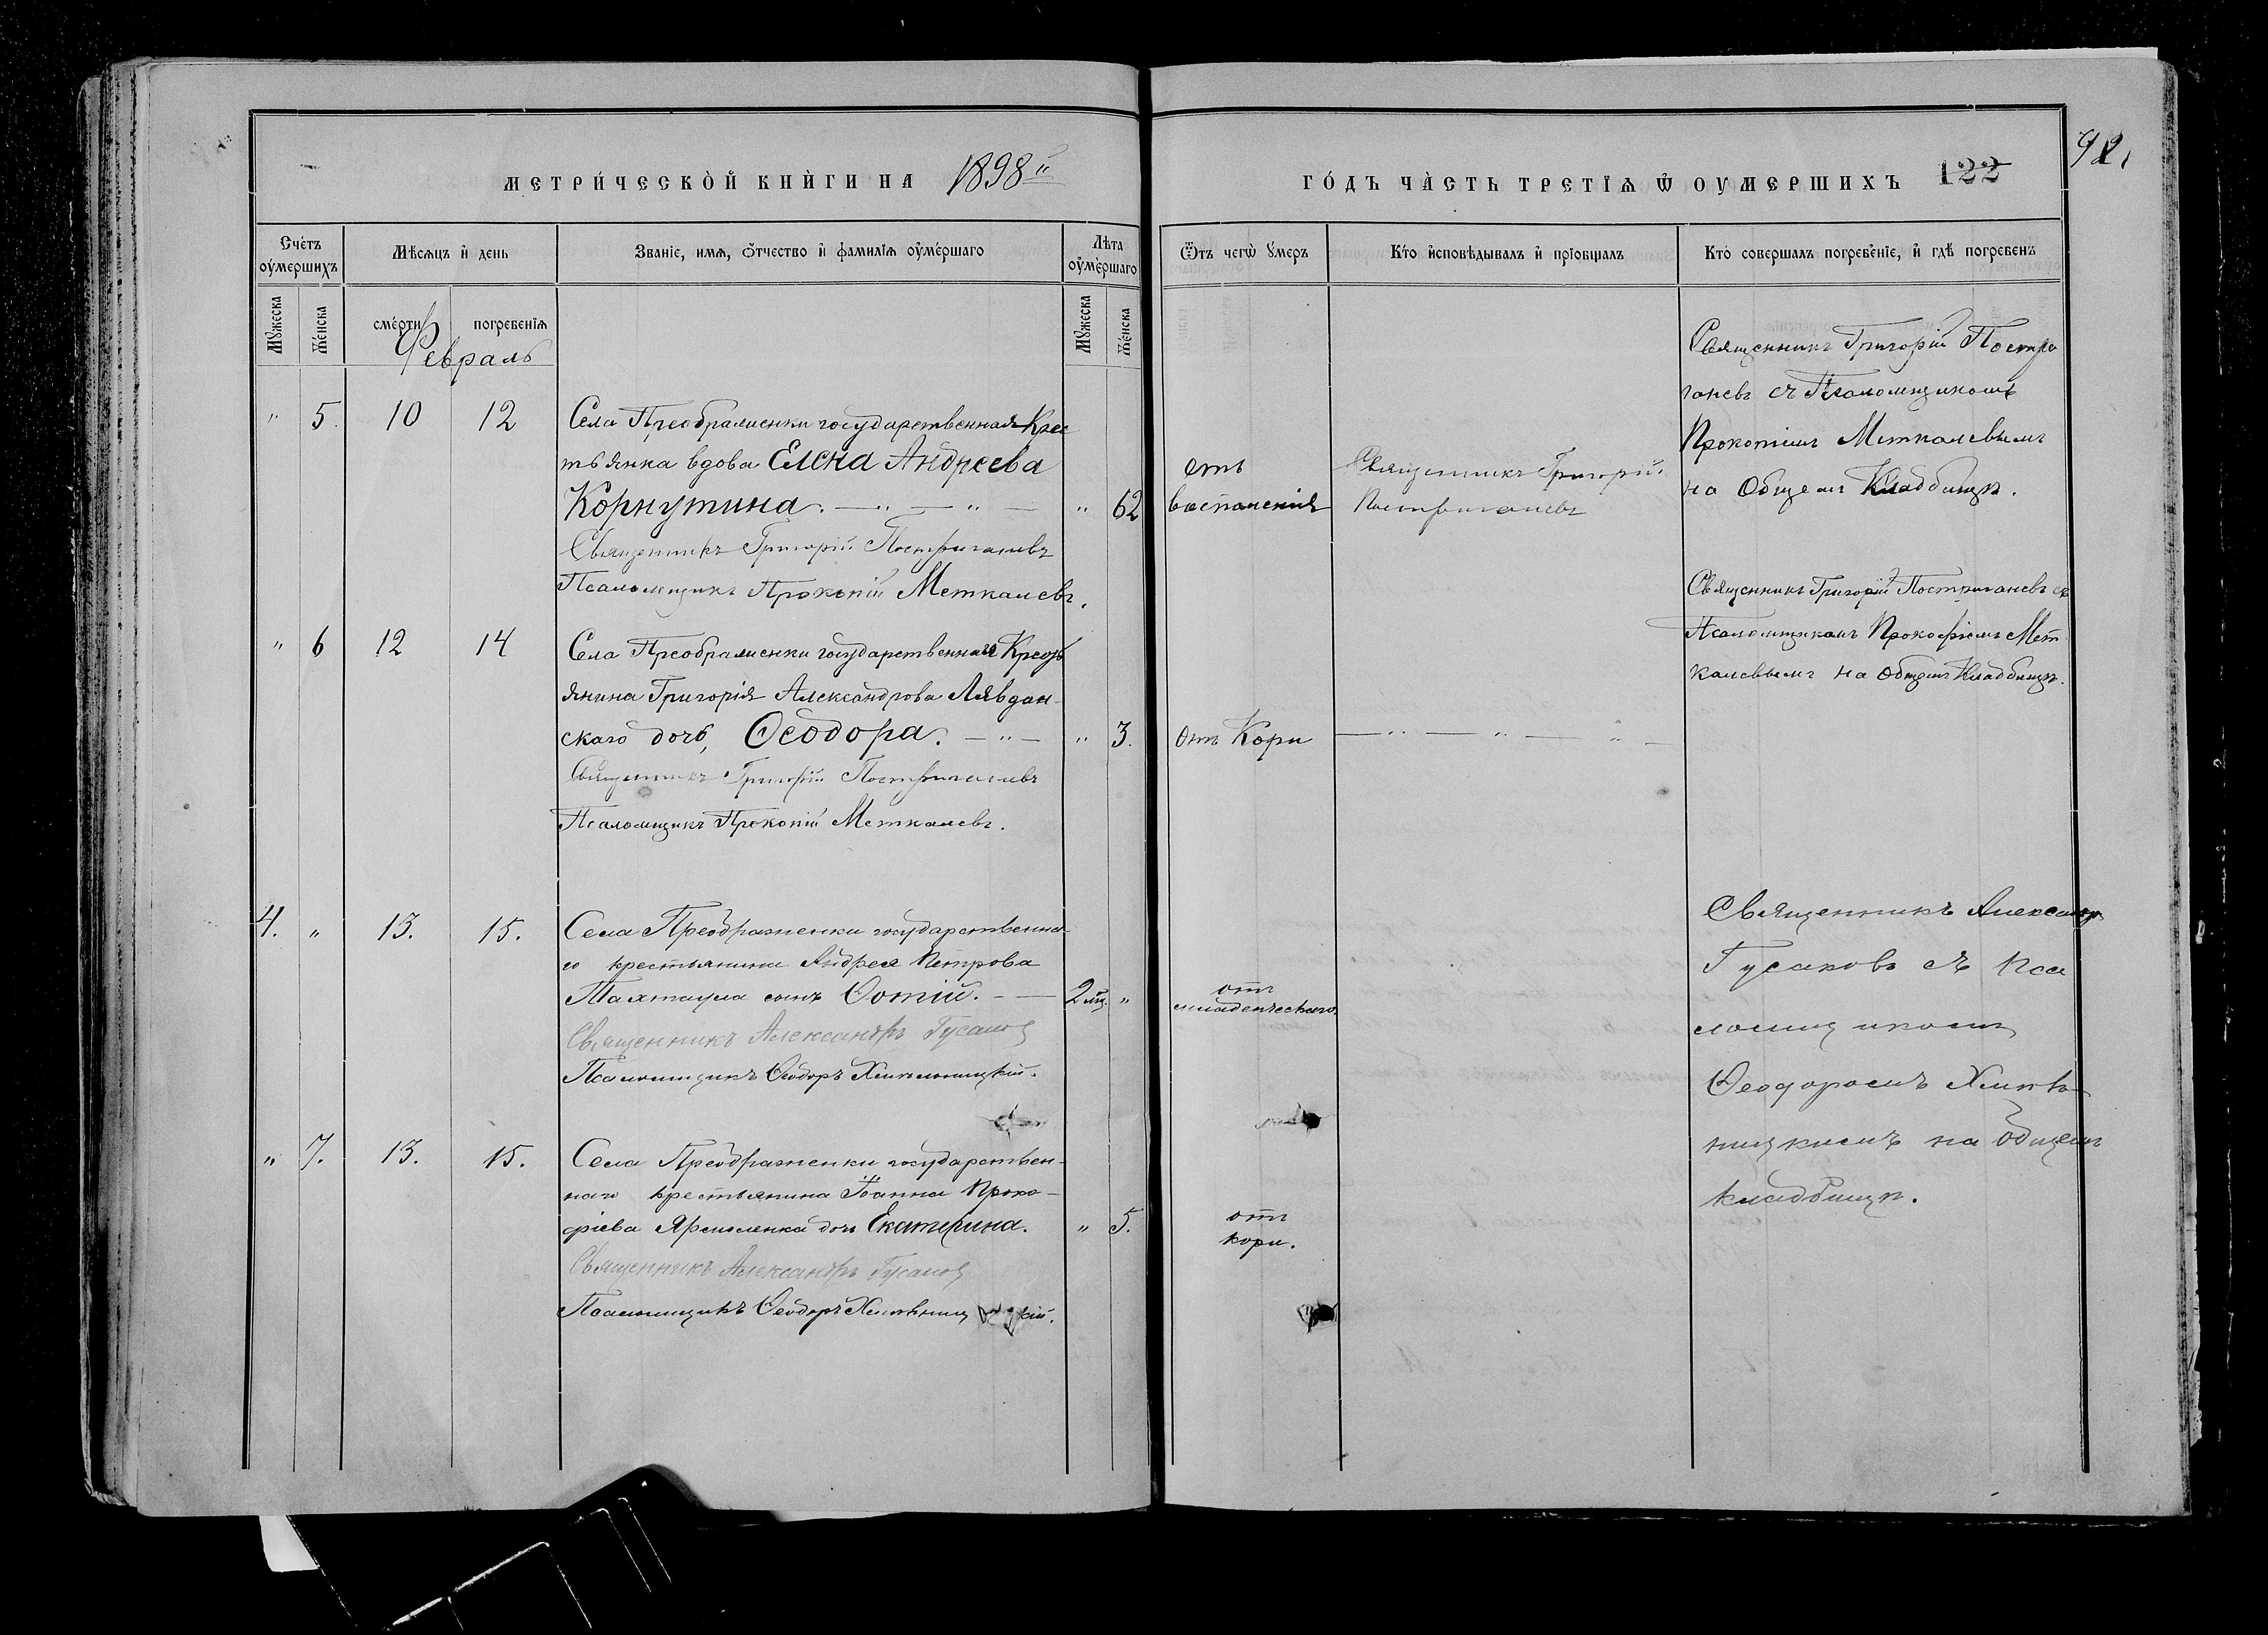 МЕТРИ́ЧЕСКОЙ КНИ́ГИ НА 1898й
ГО́ДЪ ЧА́СТЬ ТРЕТІѦ Ѡ ОУМЕРШИХЪ 122
92.
Счетъ оумершихъ
Мѣсяцъ и день
Званіе, имя, отчество и фамилія оумершаго
Лѣта оумершаго
Отъ чегѡ умеръ
Кто исповѣдывалъ и пріобщалъ
Кто совершалъ погребеніе, и гдѣ погребенъ
Мужеска
Женска
смерти
погребенія
Мужеска
Женска
Февраль
" 5. 10 12
Села Преображенки государственная Крес
тьянка вдова Елена Андреева
Корнутина. — " — " —
" 62
Священникъ Григорій Постригановъ
Псаломщикъ Прокопій Меткалевъ.
отъ
воспаленія
Священникъ Григорій
Постригановъ
Священникъ Григорій Постри
гановъ съ Псаломщикомъ
Прокопіемъ Меткалевымъ
на Общемъ Кладбищѣ.
" 6 12 14
Села Преображенки государственнаго Кресть
янина Григорія Александрова Лявдан-
скаго дочь, Ѳеодора. — " —
" 3.
Священникъ Григорій Постригановъ
Псаломщикъ Прокопій Меткалевъ.
отъ Кори
— " — " — " —
Священникъ Григорій Постригановъ съ
Псаломщикомъ Прокофіемъ Мет
калевымъ на общемъ Кладбищѣ.
4. " 13. 15.
Села Преображенки государственна-
го крестьянина Андрея Петрова
сынъ Фотій. - —
2 мц. "
Священникъ Александръ Гусаковъ
Псаломщикъ Ѳеодоръ Хмѣльницкій.
отъ
младенческаго.
Священникъ Александр
Гусаковъ съ Пса
ломщикомъ
Ѳеодоромъ Хмѣль
ницкимъ на общемъ
кладбищѣ.
" 7. 13. 15.
Села Преображенки государствен-
наго крестьянина Іоанна Проко-
фіева Ярмоленка дочь Екатерина.
" 5.
Священникъ Александръ Гусаковъ
Псаломщикъ Ѳеодоръ Хмѣльницкій.
отъ
кори.